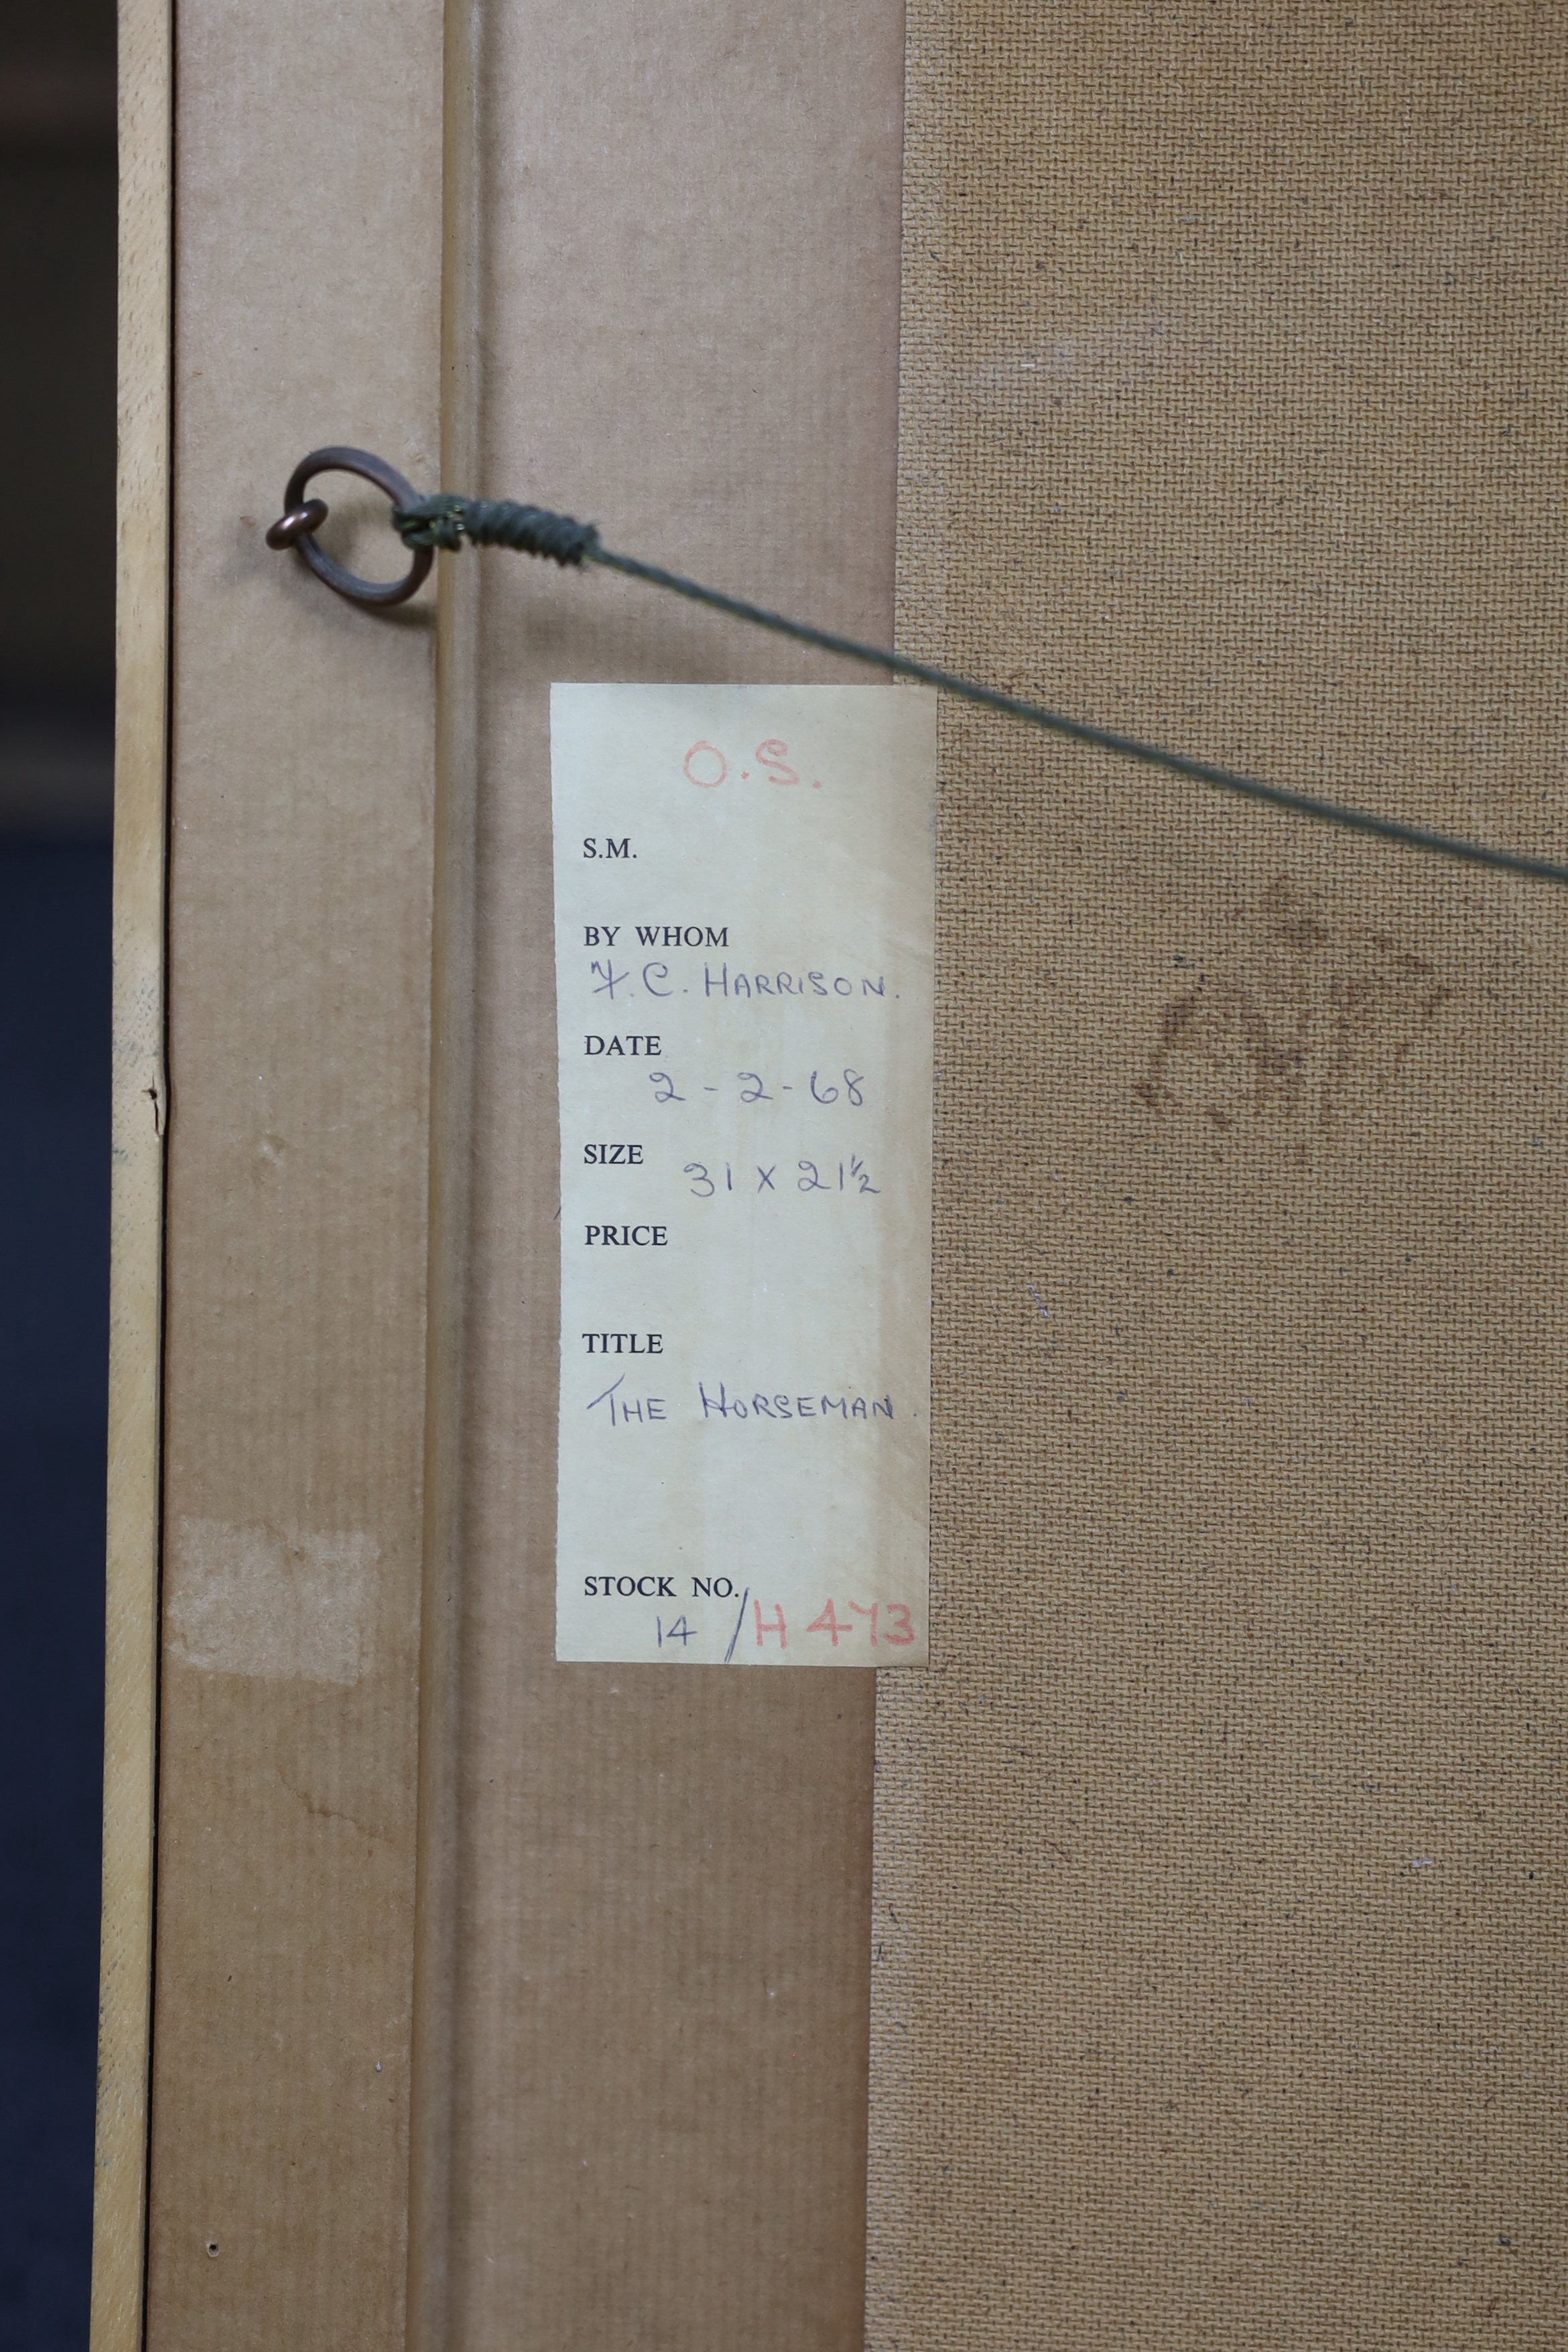 O.S.
S.M.
BY WHOM
F. C. HARRISON.
DATE
2 - 2 - 68
SIZE 31 X 21½
PRICE
TITLE
THE HORSEMAN.
STOCK NO.
14 / H 473